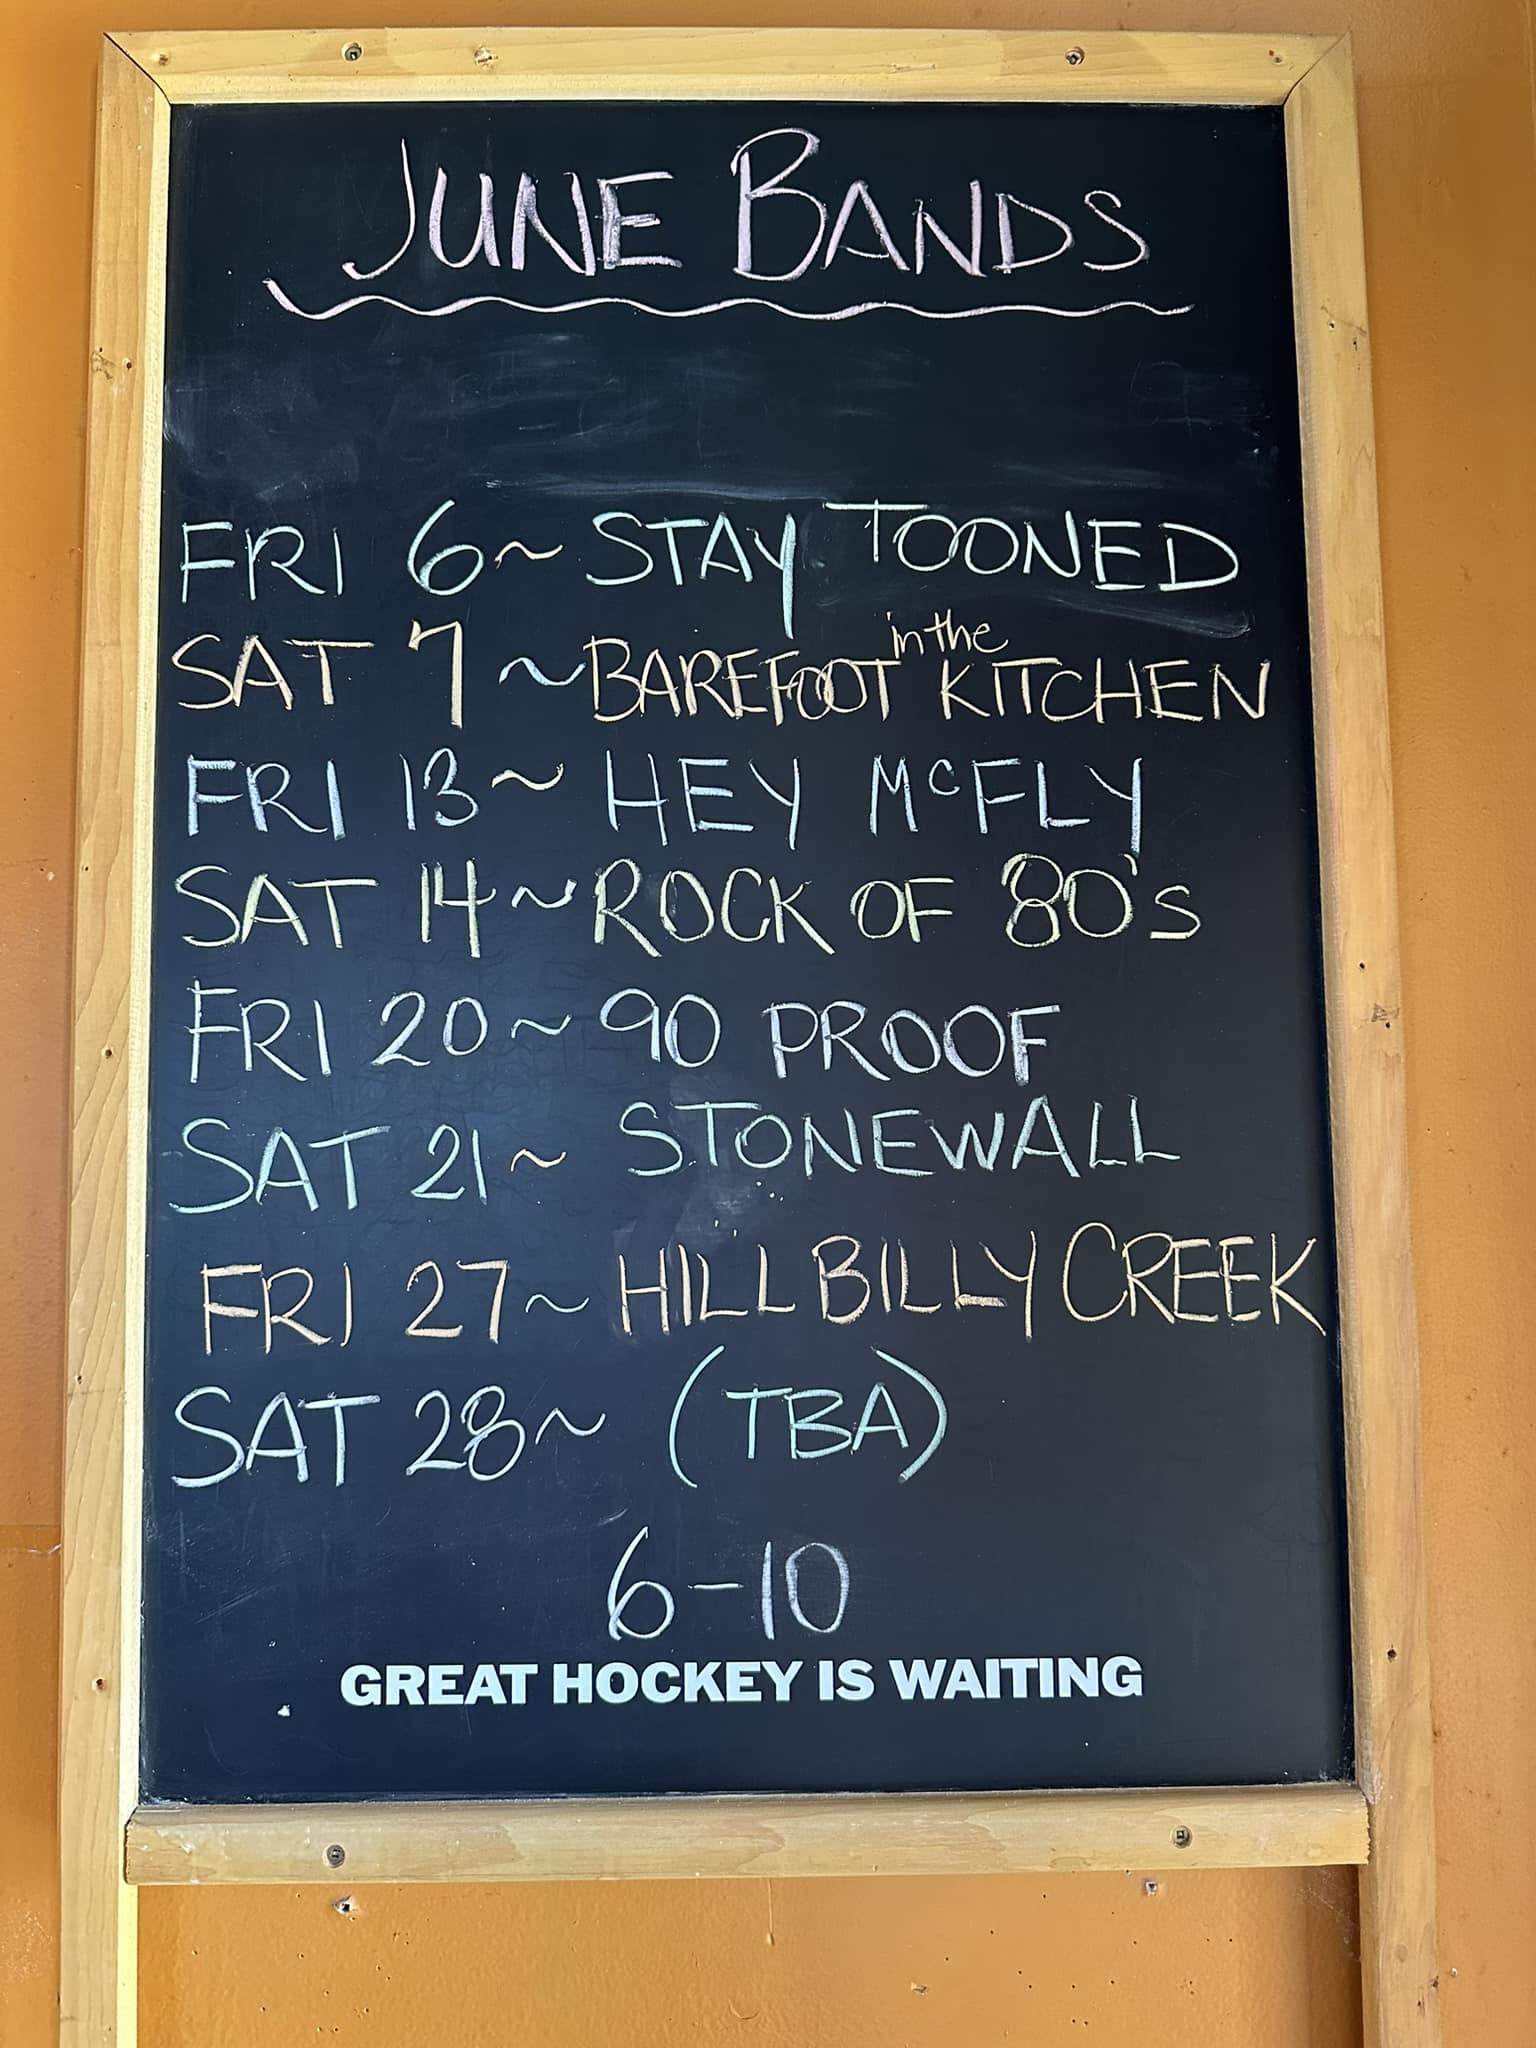 JUNE BANDS
FRI 6~ STAY TOONED
SAT 7 ~ BAREFOOT in the KITCHEN
FRI 13~ HEY McFLY
SAT 14~ ROCK OF 80's
FRI 20~ 90 PROOF
SAT 21~ STONEWALL
FRI 27~ HILLBILLY CREEK
SAT 28~ (TBA)
6-10
GREAT HOCKEY IS WAITING